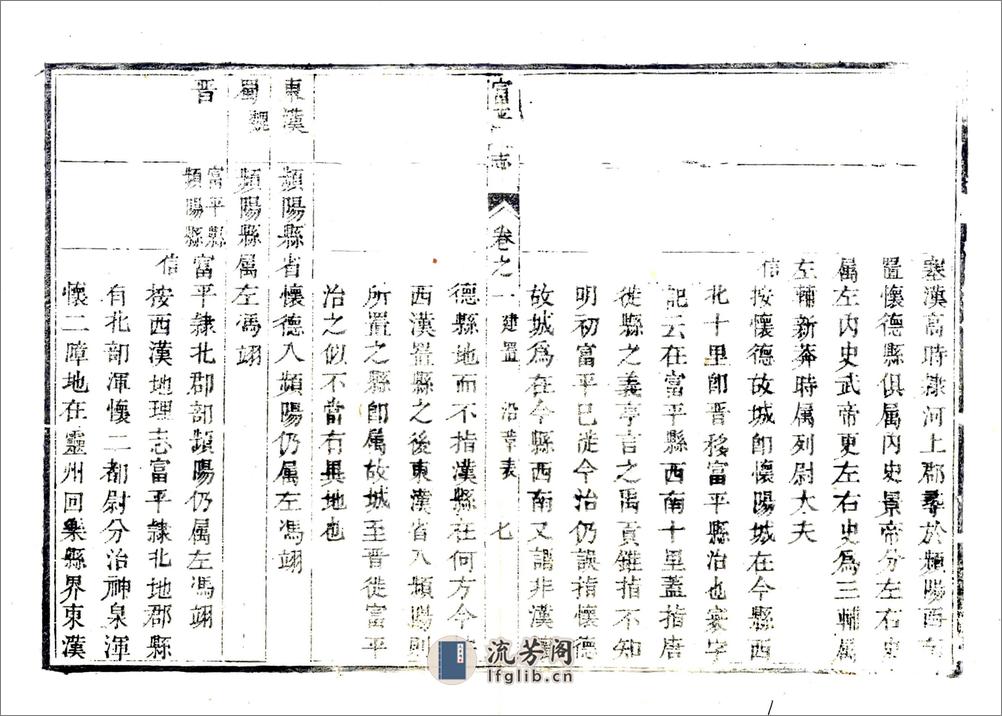 塞漢高時隷河上郡尋於頻陽西南
置懷德縣俱屬內史景帝分左右史
屬左內史武帝更左右史爲三輔屬
左輔新莽時属列尉大夫
按懷德故城即懷陽城在今縣西
北十里卽晉移富平縣治也寰宇
記云在富平縣西南十里蓋指唐
徙縣之義亭言之禹貢錐指不知
明初富平已徙今治仍誤指懷德
故城爲在今縣西南又謂非漢懷
富平志 卷之一 建置 沿革表 七
德縣地而不指漢縣在何方今
西漢置縣之後東漢省入頻陽則
所置之縣卽属故城至晉徙富平
治之似不當有異地也
東漢 頻陽縣省懷德入頻陽仍属左馮翊
蜀魏 頻陽縣属左馮翊
晋 富平縣 頻陽縣 富平隷北郡部頻陽仍属左馮翊
按西漢地理志富平隷北地郡縣
有北部渾懷二都尉分治神泉渾
懷二障地在靈州回樂縣界東漢
流芳阁
lfglib.cn